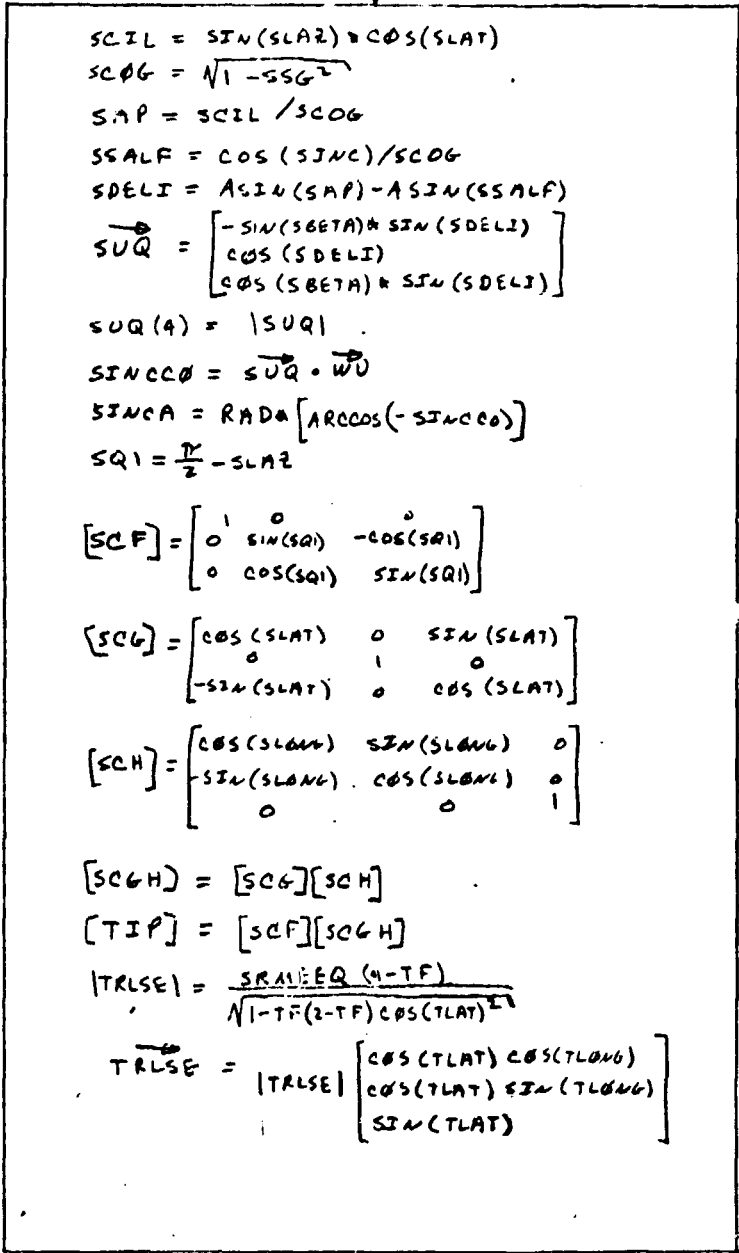 SCIL = SIN(SLAZ) * CØS(SLAT)
SCØG = √(1 - SSG²)
SAP = SCIL / SCOG
SSALF = COS (SINC)/SCOG
SDELI = ASIN(SAP) - ASIN(SSALF)
SUQ = [-SIN(SBETA)* SIN(SDELI)
CØS (SDELI)
CØS (SBETA) * SIN(SDELI)]
SUQ(4) = |SUQ|
SINCCØ = SUQ • WU
SINCA = RAD*[ARCCOS(-SINCCO)]
SQ1 = π/2 - SLAZ
[SCF] = [1 0 0
0 SIN(SQ1) -COS(SQ1)
0 COS(SQ1) SIN(SQ1)]
[SCG] = [COS (SLAT) 0 SIN (SLAT)
0 1 0
-SIN (SLAT) 0 CØS (SLAT)]
[SCH] = [CØS(SLØNG) SIN(SLØNG) 0
-SIN(SLØNG) CØS(SLØNG) 0
0 0 1]
[SCGH] = [SCG][SCH]
[TIP] = [SCF][SCGH]
|TRLSE| = SRMEEQ (1-TF) / √(1-TF(2-TF) CØS(TLAT)²)
TRLSE = |TRLSE| [CØS(TLAT) CØS(TLØNG)
CØS(TLAT) SIN(TLØNG)
SIN(TLAT)]